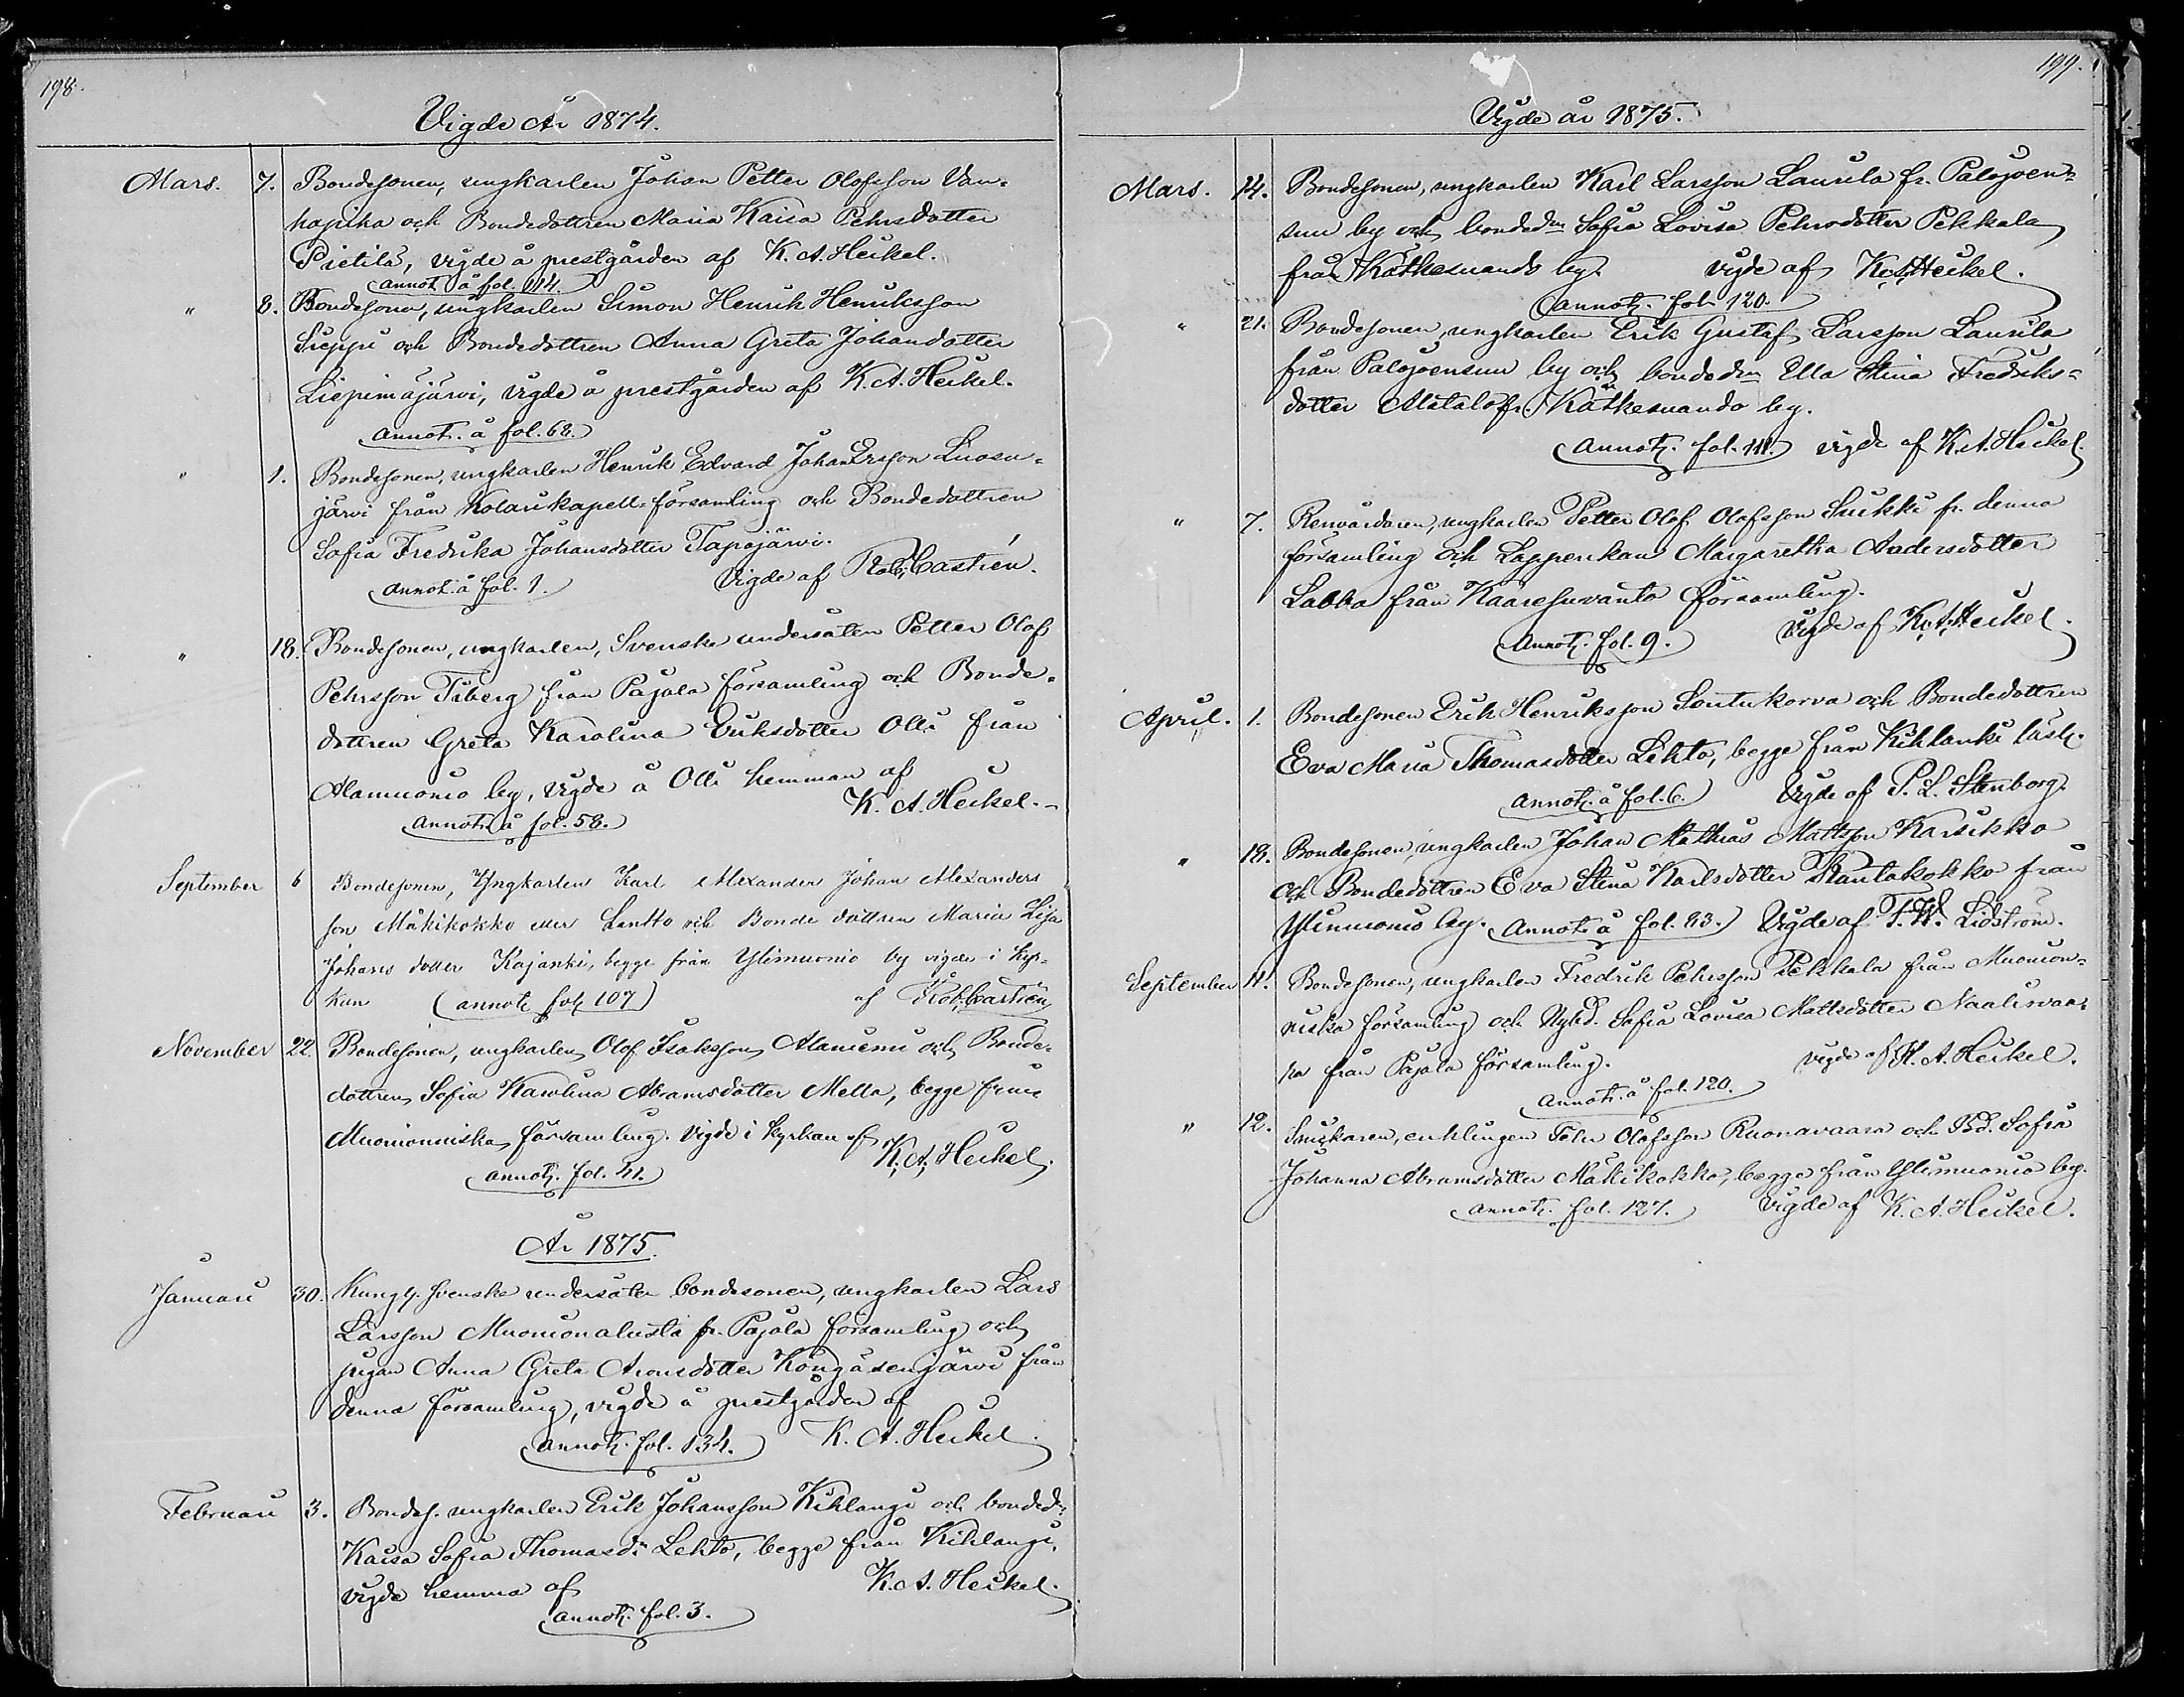 198.
Vigde År 1874.
Mars. 7. Bondesonen, ungkarlen Johan Petter Olofsson Van-
hapiha och Bondedottren Maria Kaisa Pehrsdotter
Pietilä, vigde å prestgården af K. A. Heikel.
annot. å fol. 114.
" 8. Bondesonen, ungkarlen Simon Henrik Henriksson
Sieppi och Bondedottren Anna Greta Johansdotter
Liepimäjärvi, vigde å prestgården af K. A. Heikel.
annot. å fol. 68.
" 1. Bondesonen, ungkarlen Henrik Edvard Johan Ersson Luosu-
järvi från Kolari kapell-församling och Bondedottren
Sofia Fredrika Johansdotter Tapojärvi.
annot. å fol. 1. Vigde af Rob. Castrén.
" 18. Bondesonen, ungkarlen, Svenske undersåten Petter Olof
Pehrsson Tiberg från Pajala församling och Bonde-
dottren Greta Karolina Eriksdotter Olli från
Alamuonio by, vigde å Olli hemman af
annot. å fol. 58. K. A. Heikel.
September 6 Bondesonen, Yngkarlen Karl Alexander Johan Alexanders
son Mäkikokko eller Lantto och Bonde dottren Maria Lisa
Johans dotter Kajanki, begge från Ylimuonio by vigde i kyr-
kan (annot. fol. 107) af Rob. Castrén
November 22. Bondesonen, ungkarlen Olof Isaksson Alaniemi och Bonde-
dottren Sofia Karolina Abramsdotter Mella, begge från
Muonionniska församling. Vigde i kyrkan af
annot. fol. 41. K. A. Heikel.
År 1875.
Januari 30. Kungl. Svenske undersåten bondesonen, ungkarlen Lars
Larsson Muonionalusta fr. Pajala församling och
pigan Anna Greta Aronsdotter Kongäsenjärvi från
denna församling, vigde å prestgården af
annot. fol. 134. K. A. Heikel.
Februari 3. Bondes. ungkarlen Erik Johansson Kihlangi och bonded:
Kaisa Sofia Thomasdr Lehto, begge från Kihlangi,
vigde hemma af K. A. Heikel.
annot. fol. 3.
199.
Vigde år 1875.
Mars. 14. Bondesonen, ungkarlen Karl Larsson Laurila fr. Palojoen-
suu by och bondedn Sofia Lovisa Pehrsdotter Pekkala
från Kätkesuando by. vigde af K. A. Heikel.
annot. fol. 120.
" 21. Bondesonen, ungkarlen Erik Gustaf Larsson Laurila
från Palojoensuu by och bondedn Ulla Stina Fredriks-
dotter Määtälä fr. Kätkesuando by.
annot. fol. 111. vigde af K. A. Heikel.
" 7. Renvårdaren, ungkarlen Petter Olof Olofsson Suikki fr. denna
församling och Lappenkan Margaretha Andersdotter
Labba från Kaaresuvanto församling.
Annot. fol. 9. Vigde af K. A. Heikel.
April. 1. Bondesonen Erik Henriksson Soutukorva och Bondedottren
Eva Maria Thomasdotter Lehto, begge från Kihlanki
annot. å fol. 6. Vigde af P. L. Stenborg.
" 18. Bondesonen, ungkarlen Johan Mathias Mattsson Karsikko
och Bondedottren Eva Stina Karlsdotter Rautakokko från
Ylimuonio by. Annot. å fol. 83. Vigde af F. W. Lidström.
September 11. Bondesonen, ungkarlen Fredrik Pehrsson Pekkala från Muonion-
niska församling och Nybd. Sofia Lovisa Mattsdotter Naalisvaa-
ra från Pajala församling. vigde af K. A. Heikel.
annot. å fol. 120.
" 12. enklingen Petter Olofsson Ruonavaara och Bd. Sofia
Johanna Abramsdotter Mäkikokko, begge från Ylimuonio by.
annot. fol. 127. Vigde af K. A. Heikel.